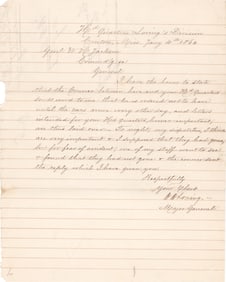 Hd Quarters Loring's Division
Canton, Miss, Jany 10th 1864
Genl W H Jackson
Comdg
General
I have the honor to state
that the Courier has been here and your Hd Quarters
sends word to me that he is ordered not to leave
until the cars come every other day, and letters
intended for your Hd Quarters, however important,
are thus laid over. To night, my dispatches, I think
are very important & I supposed that they had gone,
but for fear of accident, one of my staff went to see
& found that they had not gone & the courier sent
the reply which I have given you
Respectfully
Your Obt
W W Loring
Major General